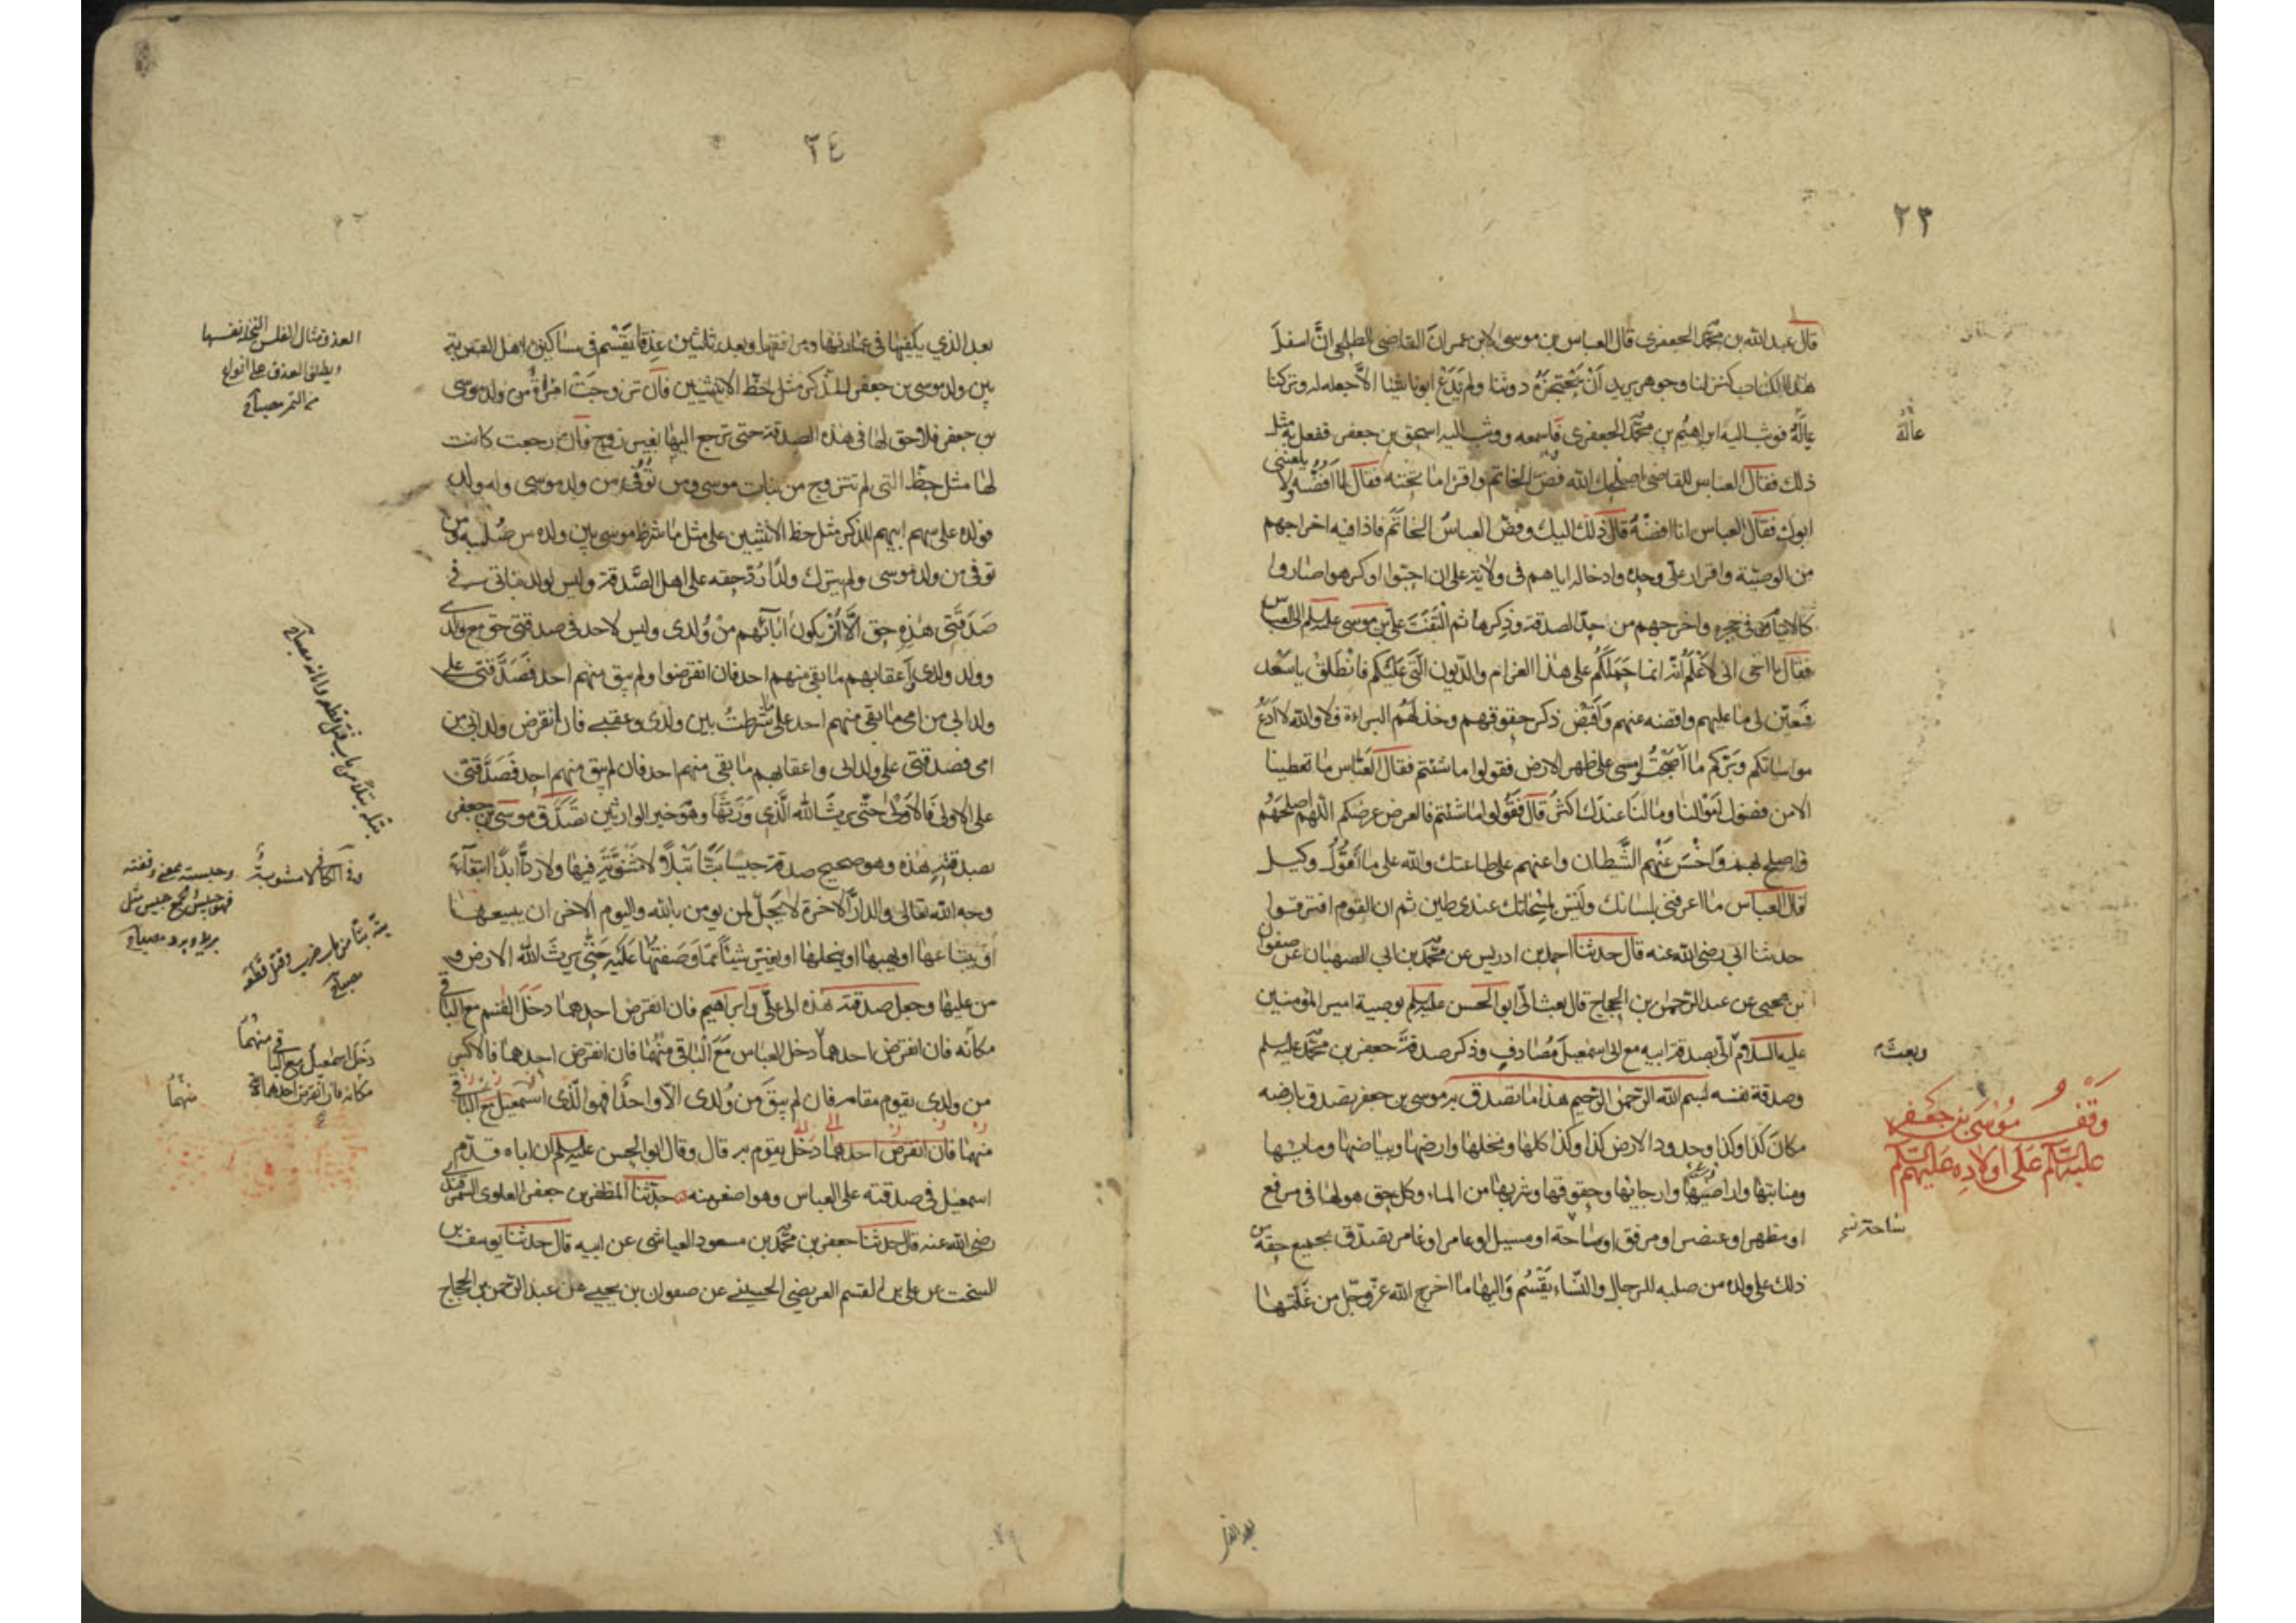 ٢٣
قال عبد الله بن محمد الجعفرى قال العباس بن موسى لابن عمران القاضى الطلحى ان اسفل
هذا الكتاب كنز لنا وجوهر يريد ان يحتجزه دوننا ولم يدع ابونا شيئا الا جعله له وتركنا
عالة فوثب اليه ابرهيم بن محمد الجعفرى فاسمعه ووثب اليه اسحق بن جعفر ففعل به مثل
ذلك فقال العباس للقاضى اصلحك الله فض الخاتم واقرا ما تحته فقال لا افضه ولا يلعننى
ابوك فقال العباس انا افضه قال ذلك اليك وفض العباس الخاتم فاذا فيه اخراجهم
من الوصية واقرار على وحده وادخاله اياهم فى ولاية على ان احبوا او كرهوا صاروا
كالايتام فى حجره واخرجهم من حد الصدقة وذكرها ثم التفت على بن موسى عليه السلم الى العباس
فقال يا اخى انى لاعلم انه انما حملكم على هذا الغرام والديون التى عليكم فانطلق يا سعد
فتعين لى ما عليهم واقضه عنهم واقبض ذكر حقوقهم وخذ لهم البراءة فلا والله لا ادع
مواساتكم وبركم ما اصبحت وامسى على ظهر الارض فقولوا ما شئتم فقال العباس ما تعطينا
الا من فضول اموالنا وما لنا عندك اكثر قال فقولوا ما شئتم فالعرض عرضكم اللهم اصلحهم
واصلح بهم واخس عنهم الشطان واعنهم على طاعتك والله على ما نقول وكيل
قال العباس ما اعرفنى بلسانك وليس لمسحاتك عندى طين ثم ان القوم افترقوا
حدثنا ابى رضى الله عنه قال حدثنا احمد بن ادريس عن محمد بن ابى الصهبان عن صفوان
بن يحيى عن عبد الرحمن بن الحجاج قال بعث الى ابو الحسن عليه السلم بوصية امير المؤمنين
عليه السلام الى بصدقة ابيه مع ابى اسمعيل مصادف وذكر صدقة جعفر بن محمد عليه السلم
وصدقة نفسه بسم الله الرحمن الرحيم هذا ما تصدق به موسى بن جعفر تصدق بارضه
مكان كذا وكذا وحدود الارض كذا وكذا كلها ونخلها وارضها وبياضها ومائها
وارجائها وحقوقها وشربها من الماء وكل حق هو لها فى مرفع
او مظهر او عنصر او مرفق او ساحة او مسيل او عامر او غامر تصدق بجميع حقه من
ذلك على ولده من صلبه للرجال والنساء يقسم واليها ما اخرج الله عز وجل من غلتها
عالة
وبعث
وقف موسى بن جعفر
عليه السلم على اولاده عليهم السلم
ساحة
٢٤
بعد الذى يكفيها فى عمارتها ومرافقها وبعد ثلثين عذقا يقسم فى مساكين اهل القرية
بين ولد موسى بن جعفر للذكر مثل حظ الانثيين فان تزوجت امراة من ولد موسى
بن جعفر فلا حق لها فى هذه الصدقة حتى ترجع اليها بغير زوج فان رجعت كانت
لها مثل حظ التى لم تتزوج من بنات موسى ومن توفى من ولد موسى وله ولد
فولده على سهم ابيهم للذكر مثل حظ الانثيين على مثل ما شرط موسى بين ولده من صلبه ومن
توفى من ولد موسى ولم يترك ولدا رد حقه على اهل الصدقة وليس لولد بناتى فى
صدقتى هذه حق الا ان يكون اباؤهم من ولدى وليس لاحد فى صدقتى حق مع ولدى
وولد ولدى واعقابهم ما بقى منهم احد فان انقرضوا ولم يبق منهم احد فصدقتى على
ولد ابى من امى ما بقى منهم احد على ما شرطت بين ولدى وعقبى فان انقرض ولد ابى من
امى فصدقتى على ولد ابى واعقابهم ما بقى منهم احد فان لم يبق منهم احد فصدقتى
على الاولى فالاولى حتى يرث الله الذى ورثها وهو خير الوارثين تصدق موسى بن جعفر
بصدقته هذه وهو صحيح صدقة حبيسا بتا بتلا لا مثنوية فيها ولا ردا ابدا ابتغاء
وجه الله تعالى والدار الاخرة لا يحل لمن يومن بالله واليوم الاخر ان يبيعها
او يبتاعها او يهبها او ينحلها او يغير شيئا مما وصفتها عليه حتى يرث الله الارض و
من عليها وجعل صدقته هذه الى على وابراهيم فان انقرض احدهما دخل القسم مع الباقى
مكانه فان انقرض احدهما دخل العباس مع الباقى منهما فان انقرض احدهما فالاكبر
من ولدى يقوم مقامه فان لم يبق من ولدى الا واحدا فهو الذى اسمعيل مع الباقى
منهما فان انقرض احدهما دخل يقوم به قال وقال ابو الحسن عليه السلم ان اباه قدم
اسمعيل فى صدقته على العباس وهو اصغر منه حدثنا المظفر بن جعفر العلوى السمرقندى
رضى الله عنه قال حدثنا جعفر بن محمد بن مسعود العياشى عن ابيه قال حدثنا يوسف بن
السخت عن على بن القسم العريضى الحسينى عن صفوان بن يحيى عن عبد الرحمن بن الحجاج
العذق مثال الفلس النخلة نفسها
ويطلق العذق على انواع
من التمر مصباح
وحبسته بمعنى وقفته
فهو حبيس والجمع حبس مثل
بريد وبرد مصباح
دخل اسمعيل مع الباقى منهما
مكانه فان انقرض احدهما
منهما